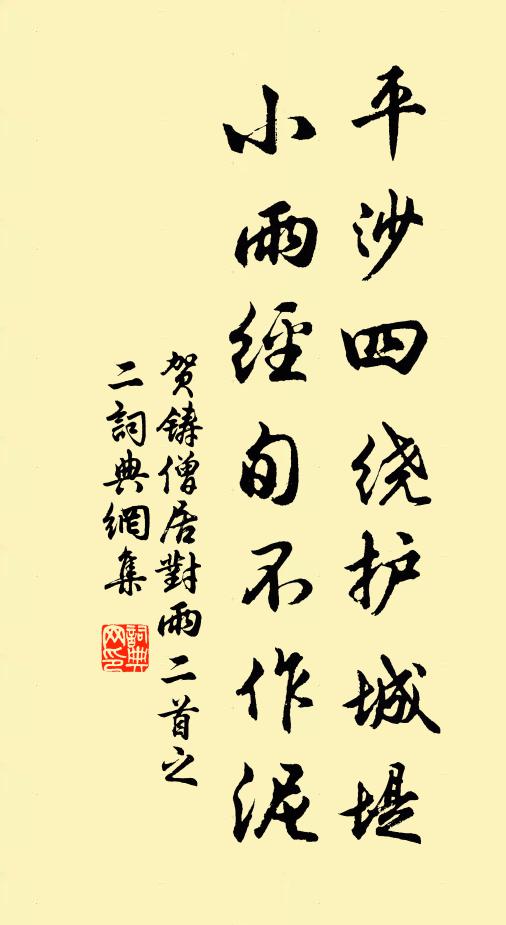 平沙四绕护城堤
小雨經旬不作泥
贺鋳僧居對雨二首之
二詞典網集
詞典
网印